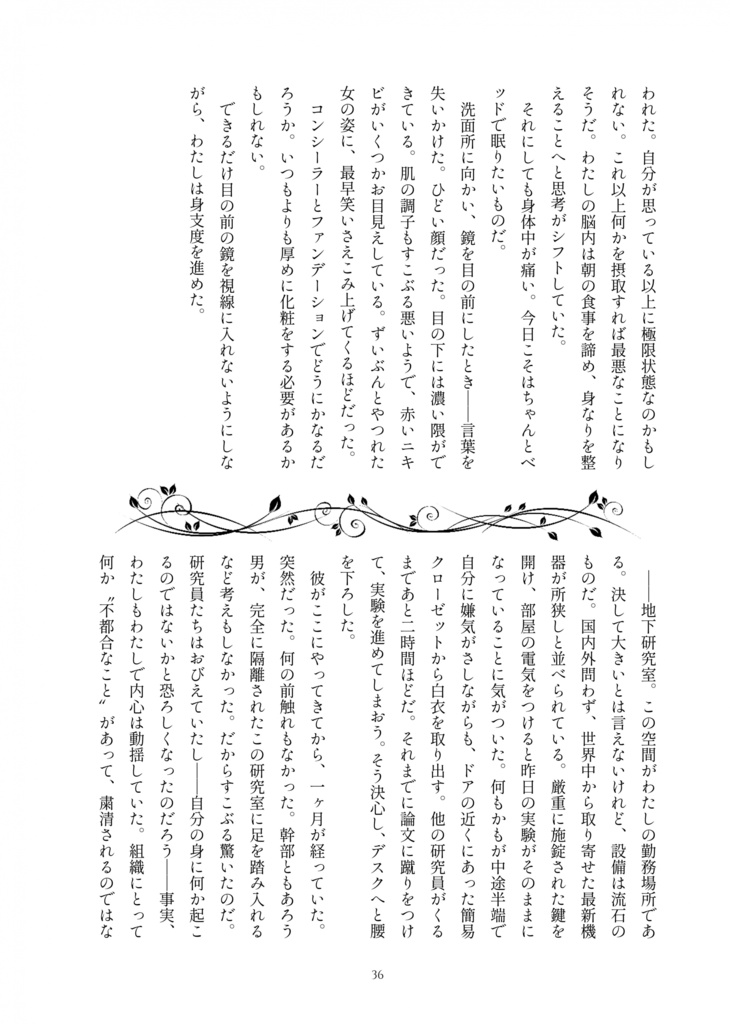 われた。自分が思っている以上に極限状態なのかもし
れない。これ以上何かを摂取すれば最悪なことになり
そうだ。わたしの脳内は朝の食事を諦め、身なりを整
えることへと思考がシフトしていた。
それにしても身体中が痛い。今日こそはちゃんとベ
ッドで眠りたいものだ。
洗面所に向かい、鏡を目の前にしたとき――言葉を
失いかけた。ひどい顔だった。目の下には濃い隈がで
きている。肌の調子もすこぶる悪いようで、赤いニキ
ビがいくつかお目見えしている。ずいぶんとやつれた
女の姿に、最早笑いさえこみ上げてくるほどだった。
コンシーラーとファンデーションでどうにかなるだ
ろうか。いつもよりも厚めに化粧をする必要があるか
もしれない。
できるだけ目の前の鏡を視線に入れないようにしな
がら、わたしは身支度を進めた。
――地下研究室。この空間がわたしの勤務場所であ
る。決して大きいとは言えないけれど、設備は流石の
ものだ。国内外問わず、世界中から取り寄せた最新機
器が所狭しと並べられている。厳重に施錠された鍵を
開け、部屋の電気をつけると昨日の実験がそのままに
なっていることに気がついた。何もかもが中途半端で
自分に嫌気がさしながらも、ドアの近くにあった簡易
クローゼットから白衣を取り出す。他の研究員がくる
まであと二時間ほどだ。それまでに論文に蹴りをつけ
て、実験を進めてしまおう。そう決心し、デスクへと腰
を下ろした。
彼がここにやってきてから、一ヶ月が経っていた。
突然だった。何の前触れもなかった。幹部ともあろう
男が、完全に隔離されたこの研究室に足を踏み入れる
など考えもしなかった。だからすこぶる驚いたのだ。
研究員たちはおびえていたし――自分の身に何か起こ
るのではないかと恐ろしくなったのだろう――事実、
わたしもわたしで内心は動揺していた。組織にとって
何か〝不都合なこと〟があって、粛清されるのではな
36